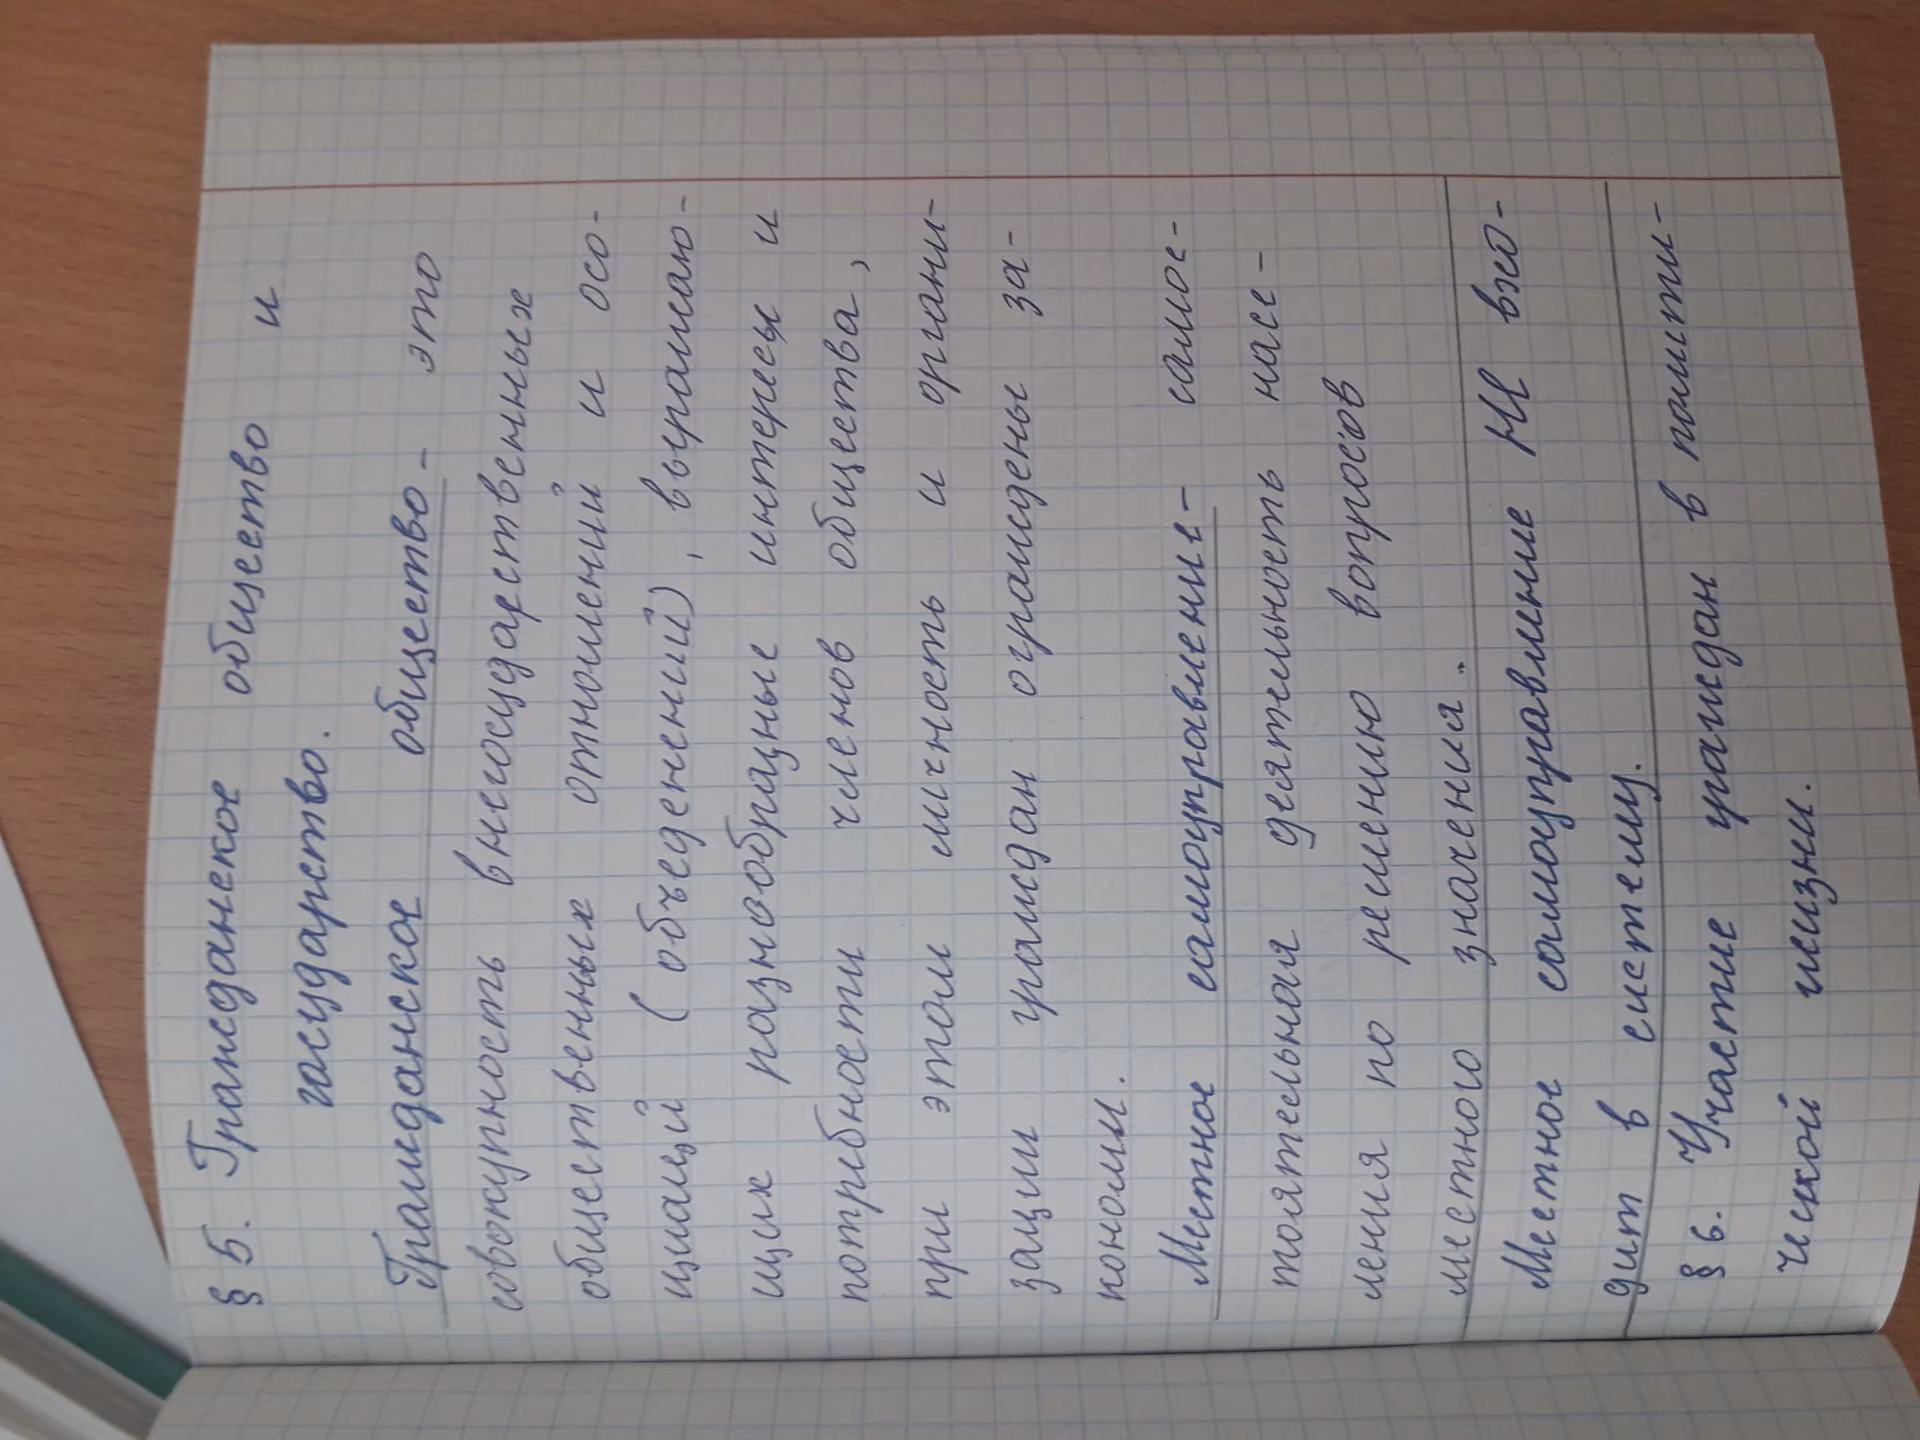 § 5. Гражданское общество и
государство.
Гражданское общество - это
совокупность внегосударственных
общественных отношений и осо-
циаций (объеденений), выражаю-
щих разнообразные интересы и
потребности членов общества,
при этом личность и органи-
зации граждан ограждены за-
коном.
Местное самоуправление - самос-
тоятельная деятельность насе-
ления по решению вопросов
местного значения.
Местное самоуправление НЕ вхо-
дит в систему.
§ 6. Участие граждан в полити-
ческой жизни.